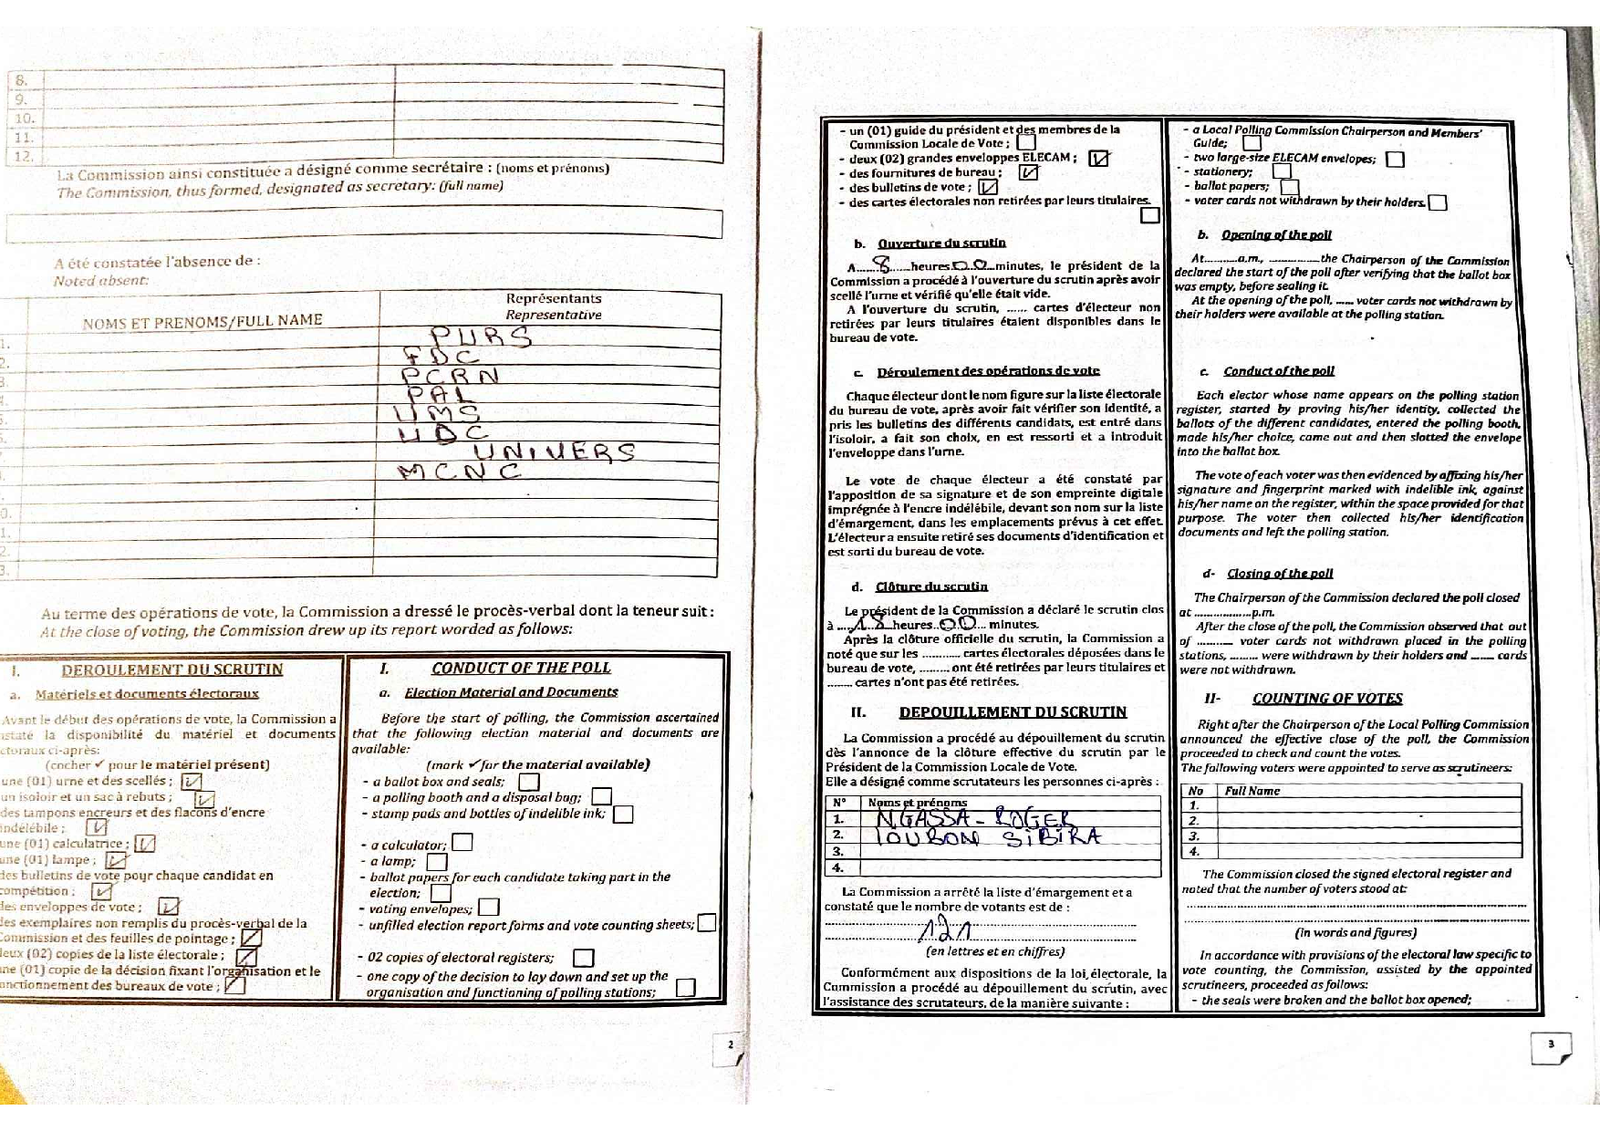 8.
9.
10.
11.
12.
La Commission ainsi constituée a désigné comme secrétaire : (noms et prénoms)
The Commission, thus formed, designated as secretary: (full name)
A été constatée l'absence de :
Noted absent:
NOMS ET PRENOMS/FULL NAME
Représentants
Representative
1. PURS
2. FDC
3. PCRN
PAL
UMS
UDC
UNIVERS
MCNC
0.
1.
2.
3.
Au terme des opérations de vote, la Commission a dressé le procès-verbal dont la teneur suit :
At the close of voting, the Commission drew up its report worded as follows:
I. DEROULEMENT DU SCRUTIN
a. Matériels et documents électoraux
Avant le début des opérations de vote, la Commission a
nstaté la disponibilité du matériel et documents
ctoraux ci-après:
(cocher ✓ pour le matériel présent)
une (01) urne et des scellés ;
un isoloir et un sac à rebuts ;
des tampons encreurs et des flacons d'encre
indélébile ;
une (01) calculatrice ;
une (01) lampe ;
des bulletins de vote pour chaque candidat en
compétition ;
des enveloppes de vote ;
des exemplaires non remplis du procès-verbal de la
ommission et des feuilles de pointage ;
deux (02) copies de la liste électorale ;
une (01) copie de la décision fixant l'organisation et le
onctionnement des bureaux de vote ;
I. CONDUCT OF THE POLL
a. Election Material and Documents
Before the start of polling, the Commission ascertained
that the following election material and documents are
available:
(mark ✓for the material available)
- a ballot box and seals;
- a polling booth and a disposal bag;
- stamp pads and bottles of indelible ink;
- a calculator;
- a lamp;
- ballot papers for each candidate taking part in the
election;
- voting envelopes;
- unfilled election report forms and vote counting sheets;
- 02 copies of electoral registers;
- one copy of the decision to lay down and set up the
organisation and functioning of polling stations;
2
- un (01) guide du président et des membres de la
Commission Locale de Vote ;
- deux (02) grandes enveloppes ELECAM ;
- des fournitures de bureau ;
- des bulletins de vote ;
- des cartes électorales non retirées par leurs titulaires.
b. Ouverture du scrutin
A.....8.....heures.00..minutes, le président de la
Commission a procédé à l'ouverture du scrutin après avoir
scellé l'urne et vérifié qu'elle était vide.
A l'ouverture du scrutin, ...... cartes d'électeur non
retirées par leurs titulaires étaient disponibles dans le
bureau de vote.
c. Déroulement des opérations de vote
Chaque électeur dont le nom figure sur la liste électorale
du bureau de vote, après avoir fait vérifier son identité, a
pris les bulletins des différents candidats, est entré dans
l'isoloir, a fait son choix, en est ressorti et a introduit
l'enveloppe dans l'urne.
Le vote de chaque électeur a été constaté par
l'apposition de sa signature et de son empreinte digitale
imprégnée à l'encre indélébile, devant son nom sur la liste
d'émargement, dans les emplacements prévus à cet effet.
L'électeur a ensuite retiré ses documents d'identification et
est sorti du bureau de vote.
d. Clôture du scrutin
Le président de la Commission a déclaré le scrutin clos
à ....18..heures..00... minutes.
Après la clôture officielle du scrutin, la Commission a
noté que sur les ........... cartes électorales déposées dans le
bureau de vote, ......... ont été retirées par leurs titulaires et
........ cartes n'ont pas été retirées.
II. DEPOUILLEMENT DU SCRUTIN
La Commission a procédé au dépouillement du scrutin
dès l'annonce de la clôture effective du scrutin par le
Président de la Commission Locale de Vote.
Elle a désigné comme scrutateurs les personnes ci-après :
N° Noms et prénoms
1. NGASSA - ROGER
2. IOUBON SIBIRA
3.
4.
La Commission a arrêté la liste d'émargement et a
constaté que le nombre de votants est de :
121
(en lettres et en chiffres)
Conformément aux dispositions de la loi électorale, la
Commission a procédé au dépouillement du scrutin, avec
l'assistance des scrutateurs, de la manière suivante :
- a Local Polling Commission Chairperson and Members'
Guide;
- two large-size ELECAM envelopes;
- stationery;
- ballot papers;
- voter cards not withdrawn by their holders.
b. Opening of the poll
At..........a.m., ...............the Chairperson of the Commission
declared the start of the poll after verifying that the ballot box
was empty, before sealing it.
At the opening of the poll, ...... voter cards not withdrawn by
their holders were available at the polling station.
c. Conduct of the poll
Each elector whose name appears on the polling station
register, started by proving his/her identity, collected the
ballots of the different candidates, entered the polling booth,
made his/her choice, came out and then slotted the envelope
into the ballot box.
The vote of each voter was then evidenced by affixing his/her
signature and fingerprint marked with indelible ink, against
his/her name on the register, within the space provided for that
purpose. The voter then collected his/her identification
documents and left the polling station.
d- Closing of the poll
The Chairperson of the Commission declared the poll closed
at ..................p.m.
After the close of the poll, the Commission observed that out
of ........... voter cards not withdrawn placed in the polling
stations, ......... were withdrawn by their holders and ....... cards
were not withdrawn.
II- COUNTING OF VOTES
Right after the Chairperson of the Local Polling Commission
announced the effective close of the poll, the Commission
proceeded to check and count the votes.
The following voters were appointed to serve as scrutineers:
No Full Name
1.
2.
3.
4.
The Commission closed the signed electoral register and
noted that the number of voters stood at:
(in words and figures)
In accordance with provisions of the electoral law specific to
vote counting, the Commission, assisted by the appointed
scrutineers, proceeded as follows:
- the seals were broken and the ballot box opened;
3